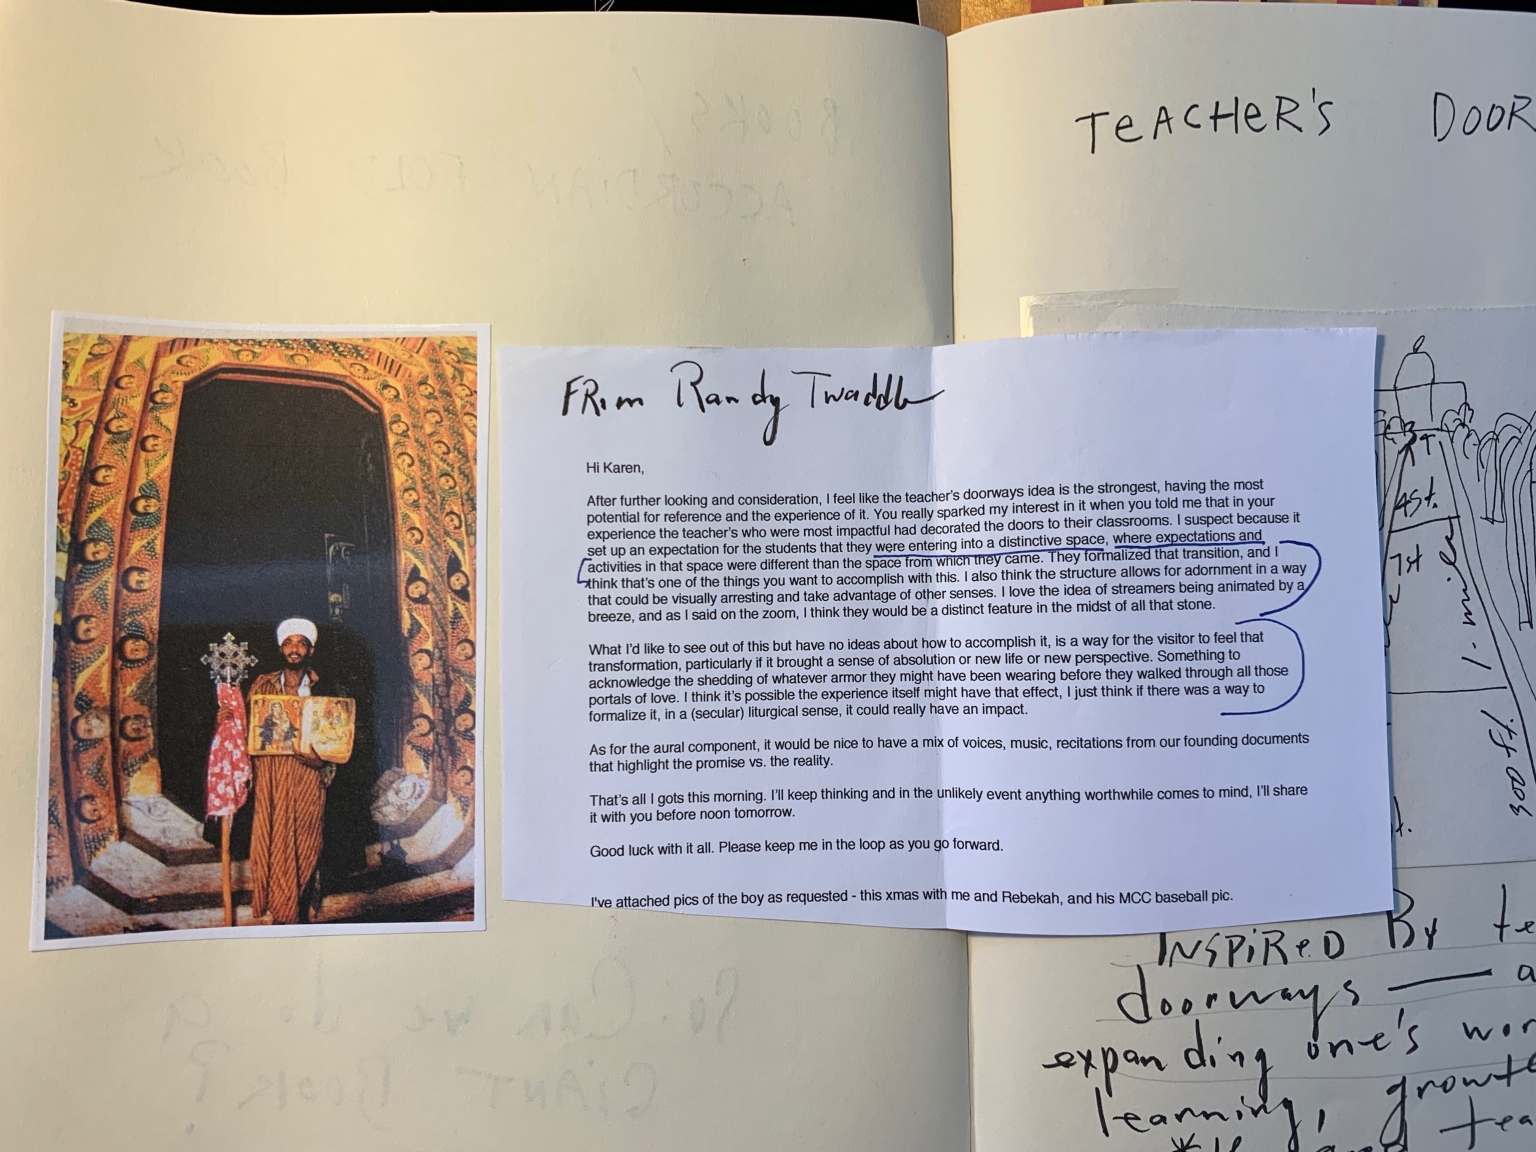 TEACHER'S DOOR
FROM Randy Twaddle
Hi Karen,
After further looking and consideration, I feel like the teacher's doorways idea is the strongest, having the most
potential for reference and the experience of it. You really sparked my interest in it when you told me that in your
experience the teacher's who were most impactful had decorated the doors to their classrooms. I suspect because it
set up an expectation for the students that they were entering into a distinctive space, where expectations and
activities in that space were different than the space from which they came. They formalized that transition, and I
think that's one of the things you want to accomplish with this. I also think the structure allows for adornment in a way
that could be visually arresting and take advantage of other senses. I love the idea of streamers being animated by a
breeze, and as I said on the zoom, I think they would be a distinct feature in the midst of all that stone.
What I'd like to see out of this but have no ideas about how to accomplish it, is a way for the visitor to feel that
transformation, particularly if it brought a sense of absolution or new life or new perspective. Something to
acknowledge the shedding of whatever armor they might have been wearing before they walked through all those
portals of love. I think it's possible the experience itself might have that effect, I just think if there was a way to
formalize it, in a (secular) liturgical sense, it could really have an impact.
As for the aural component, it would be nice to have a mix of voices, music, recitations from our founding documents
that highlight the promise vs. the reality.
That's all I gots this morning. I'll keep thinking and in the unlikely event anything worthwhile comes to mind, I'll share
it with you before noon tomorrow.
Good luck with it all. Please keep me in the loop as you go forward.
I've attached pics of the boy as requested - this xmas with me and Rebekah, and his MCC baseball pic.
4st.
1st
1 mile
500 ft
INSPIRED By te
doorways — a
expanding one's wor
learning, growt
tea
BOOKS/
ACCORDIAN FOLD BOOK
So: Can we do a
GIANT BOOK?